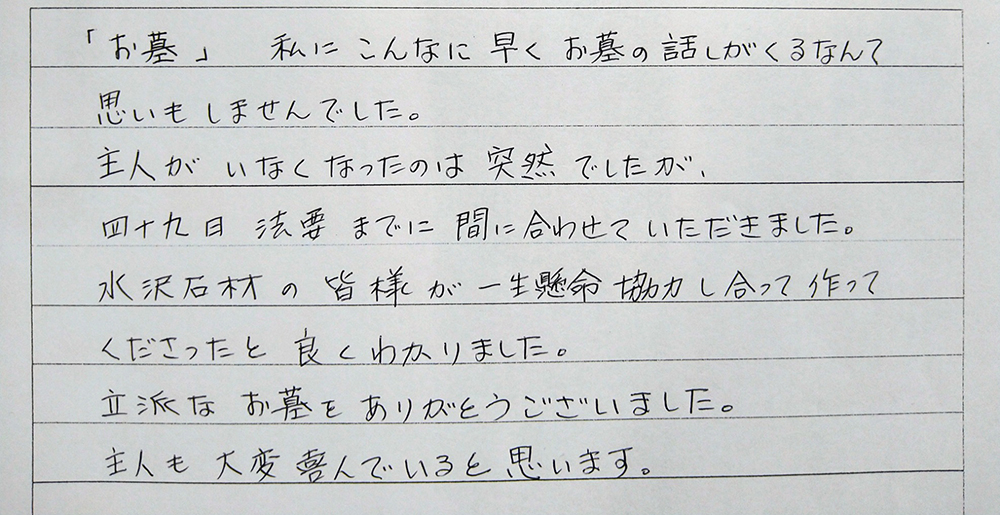 「お墓」 私に こんなに 早く お墓の 話しがくるなんて
思いも しませんでした。
主人が いなくなったのは 突然 でしたが、
四十九日 法要 までに 間に合わせて いただきました。
水沢石材 の 皆様 が 一生懸命 協力し合って 作って
くださったと 良くわかりました。
立派な お墓を ありがとうございました。
主人も 大変 喜んでいると 思います。